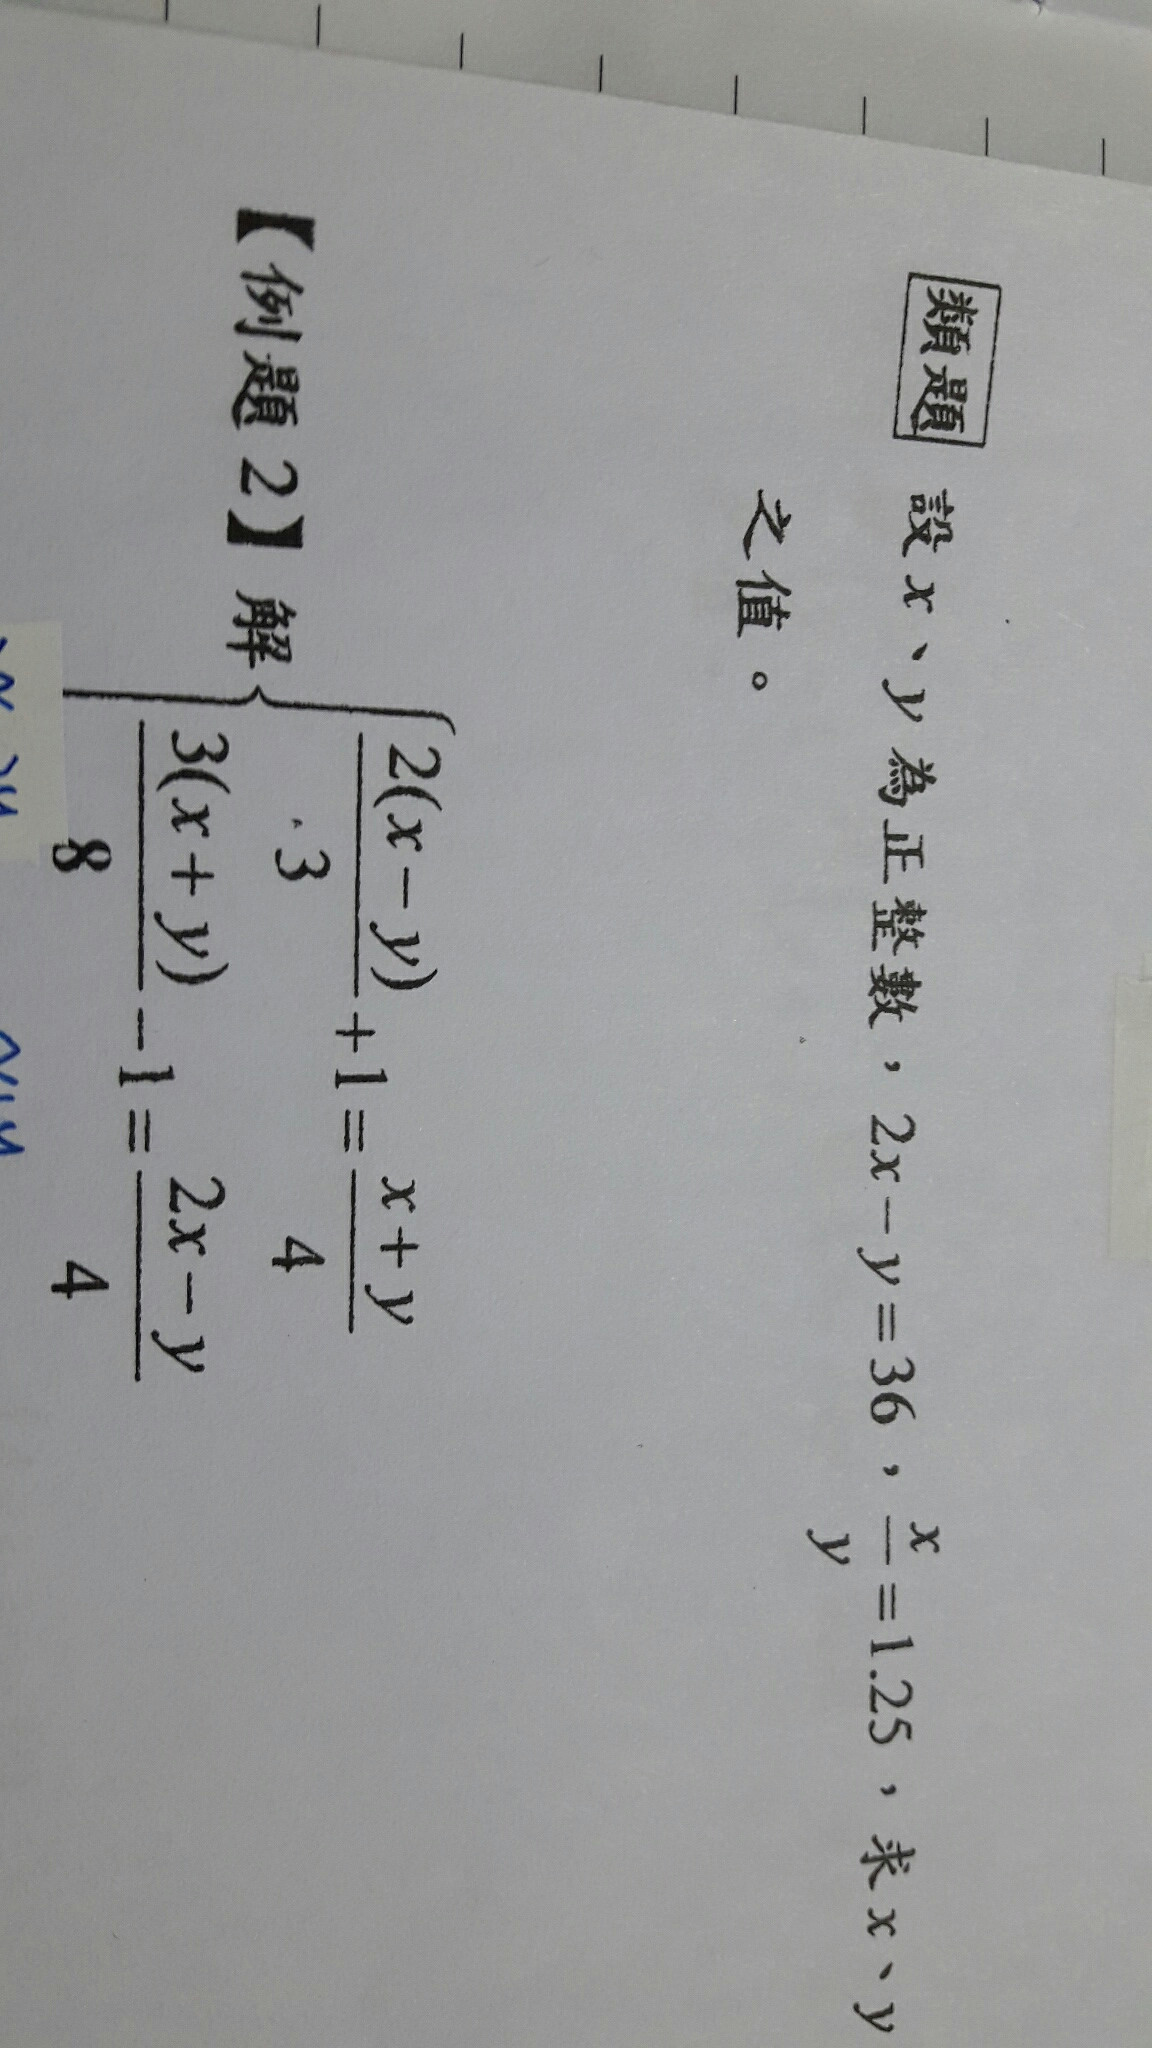 類題 設 x、y 為正整數，2x－y＝36，x/y＝1.25，求 x、y
之值。
【例題 2】解 { 2(x－y)/3 ＋1＝ (x＋y)/4
3(x＋y)/8 －1＝ (2x－y)/4